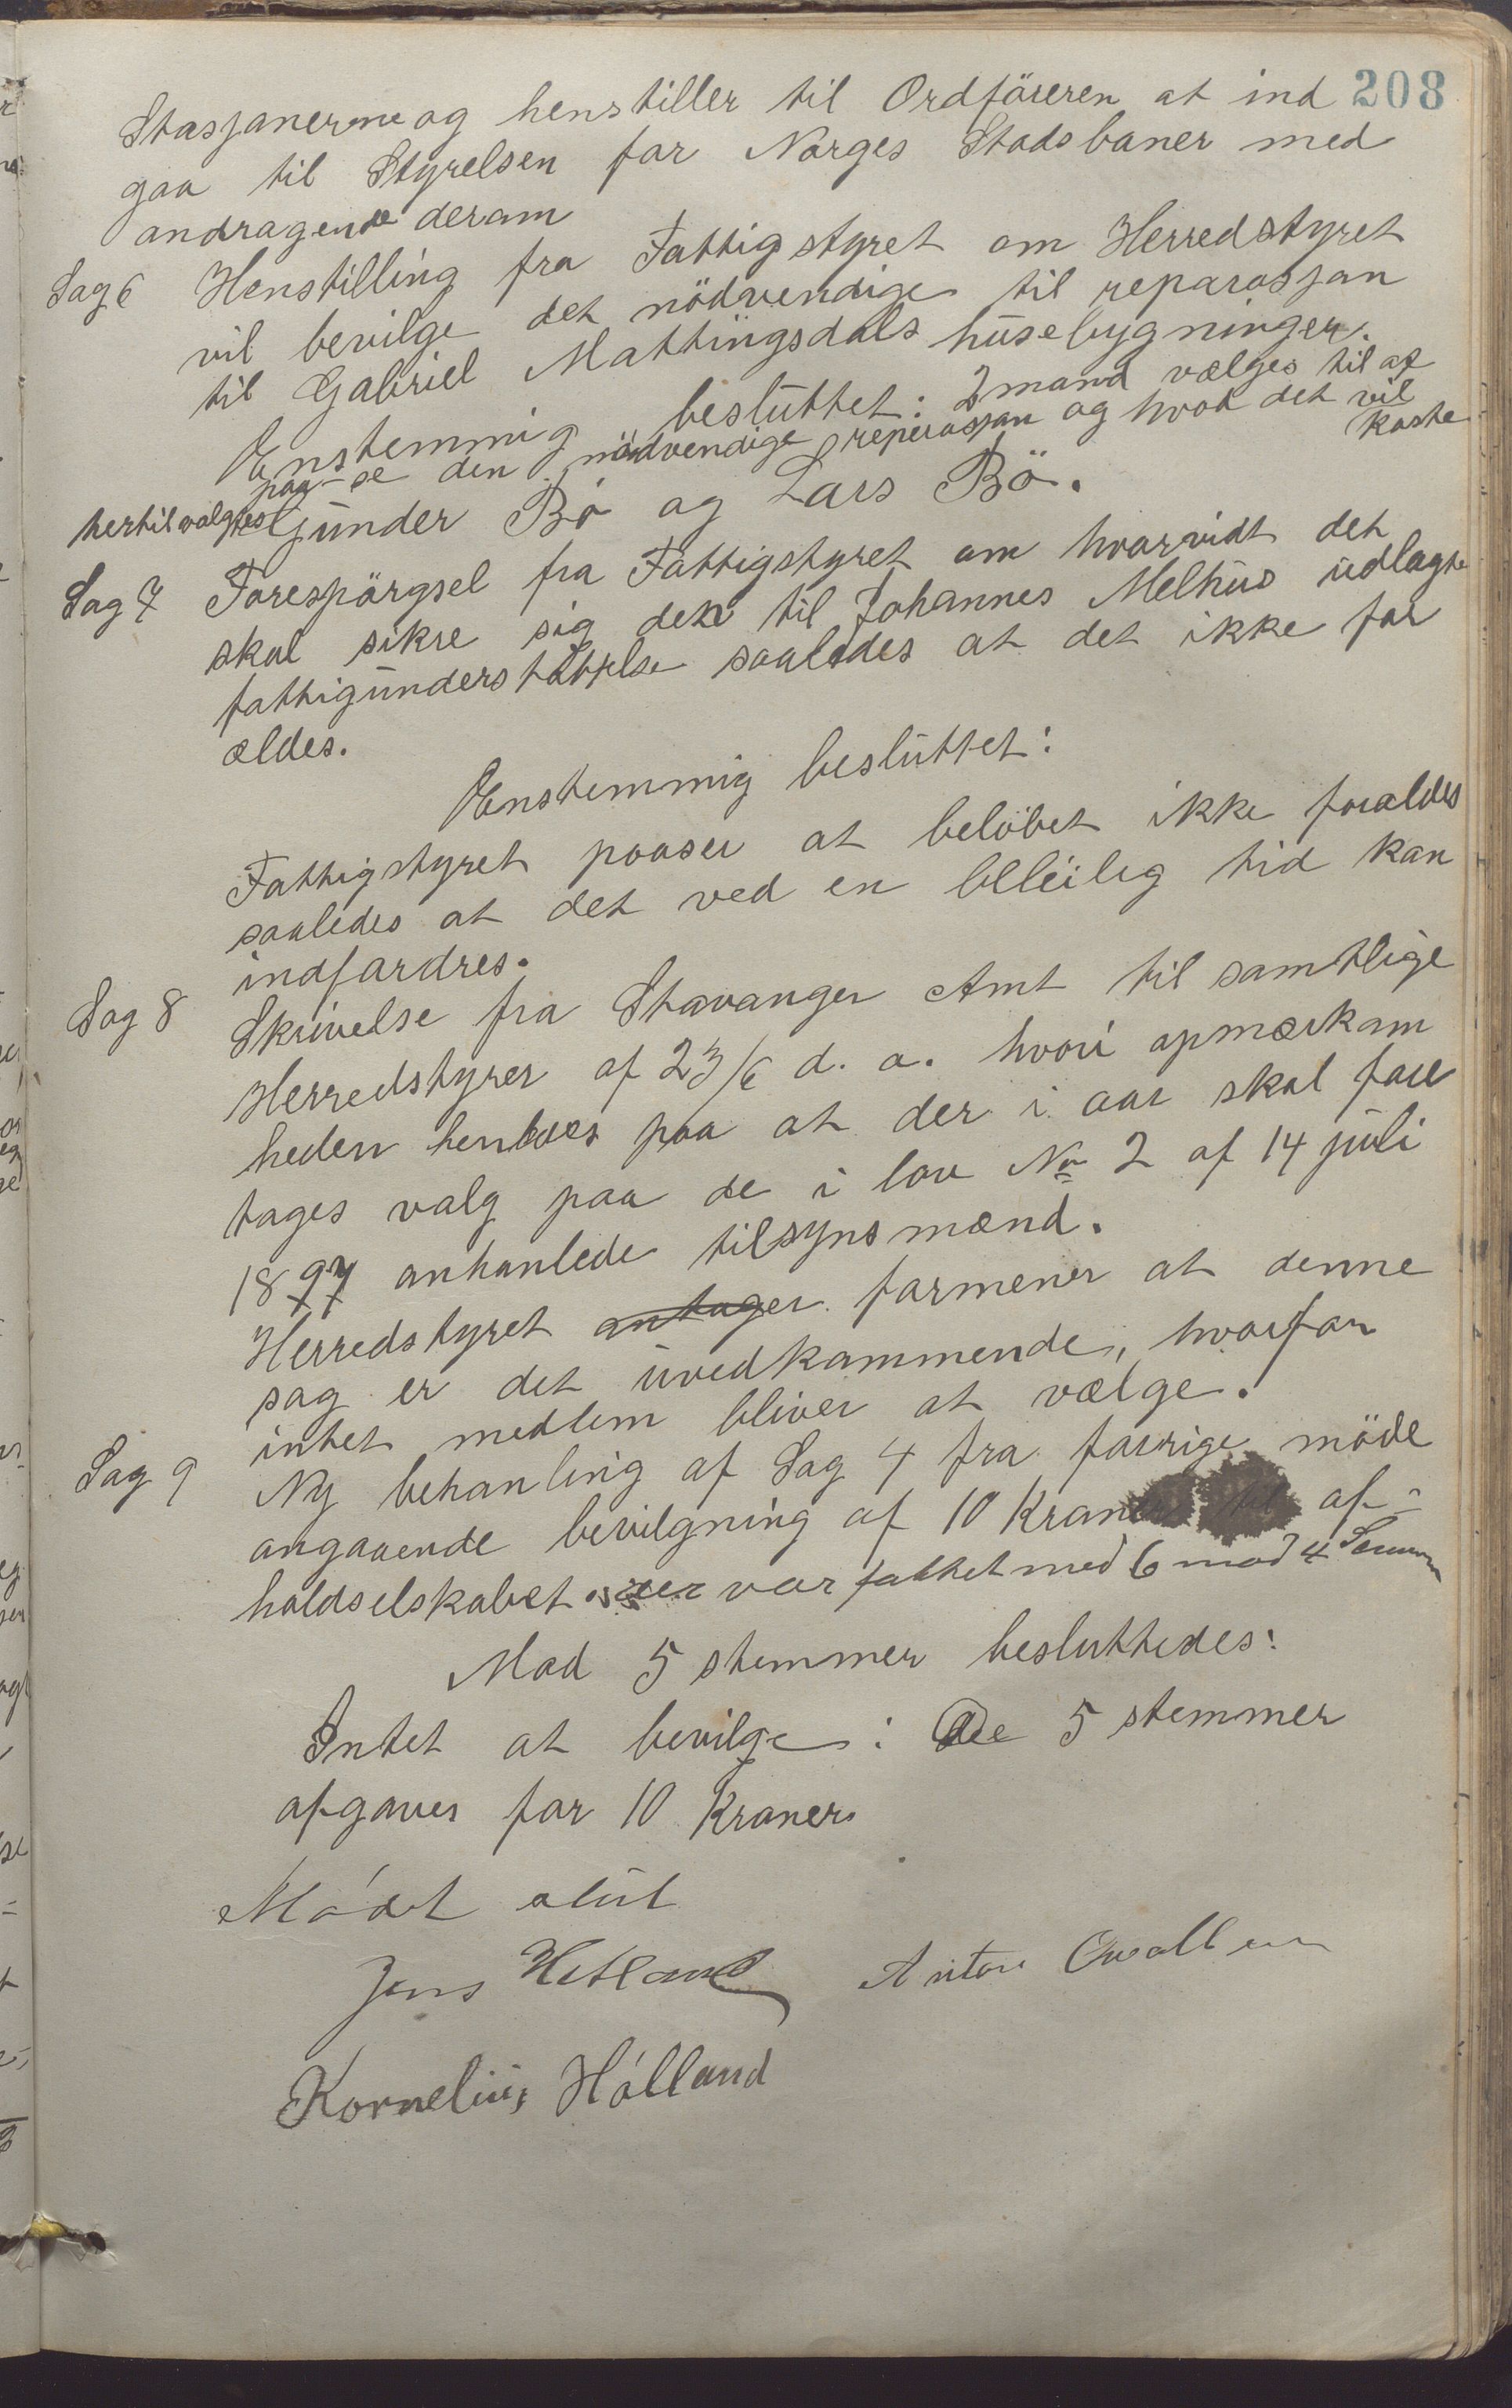 208
Stasjanerne og henstiller til Ordföreren at ind
gaa til Styrelsen for Norges Stadsbaner med
andragende deram
Sag 6 Henstilling fra Fattigstyret om Herredstyret
vil bevilge det nödvendige til reparasjan
til Gabriel Mattingsdals husebygninger.
Enstemmig besluttet: 2 mand vælges til at
paa-se den nödvendige reperasjan og hvot det vil
koste
hertil valgtes Gunder Bö og Lars Bö.
Sag 7 Forespörgsel fra Fattigstyret om hvorvidt det
skal sikre sig den til Johannes Melhus udlagte
fattigunderstöttelse saaledes at det ikke for
ældes.
Enstemmig besluttet:
Fattigstyret paaser at belöbet ikke forældes
saaledes at det ved en beleilig tid kan
indfordres.
Sag 8 Skrivelse fra Stavanger Amt til samtlige
Herredstyrer af 23/6 d. a. hvori apmærkam
heden henledes paa at der i aar skal fore
tages valg paa de i lov No 2 af 14 juli
1897 anhanlede tilsynsmænd.
Herredstyret antager formener at denne
sag er det uvedkammende, hvorfor
intet medlem bliver at vælge.
Sag 9 Ny behanling af Sag 4 fra forrige möde
angaaende bevilgning af 10 Kraner til af-
holdselskabet. der var fattet med 6 mod 4
Mod 5 stemmer besluttedes:
Intet at bevilge: de 5 stemmer
afgaves for 10 Kraner
Mödet slut
Jens Hetland Anton
Kornelius Hölland